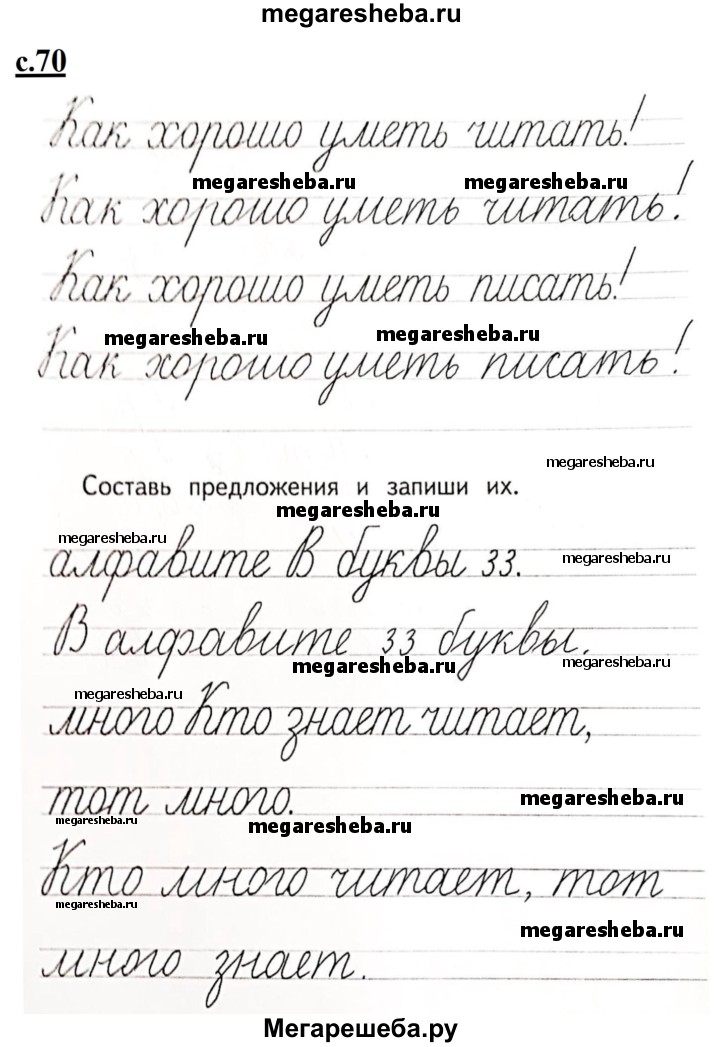 megaresheba.ru
с.70
Как хорошо уметь читать!
megaresheba.ru megaresheba.ru
Как хорошо уметь читать!
Как хорошо уметь писать!
megaresheba.ru megaresheba.ru
Как хорошо уметь писать!
megaresheba.ru
Составь предложения и запиши их.
megaresheba.ru
megaresheba.ru
алфавите В буквы 33.
megaresheba.ru
В алфавите 33 буквы.
megaresheba.ru megaresheba.ru
megaresheba.ru
много Кто знает читает,
тот много.
megaresheba.ru
megaresheba.ru megaresheba.ru
Кто много читает, тот
megaresheba.ru
megaresheba.ru
много знает.
Мегарешеба.ру